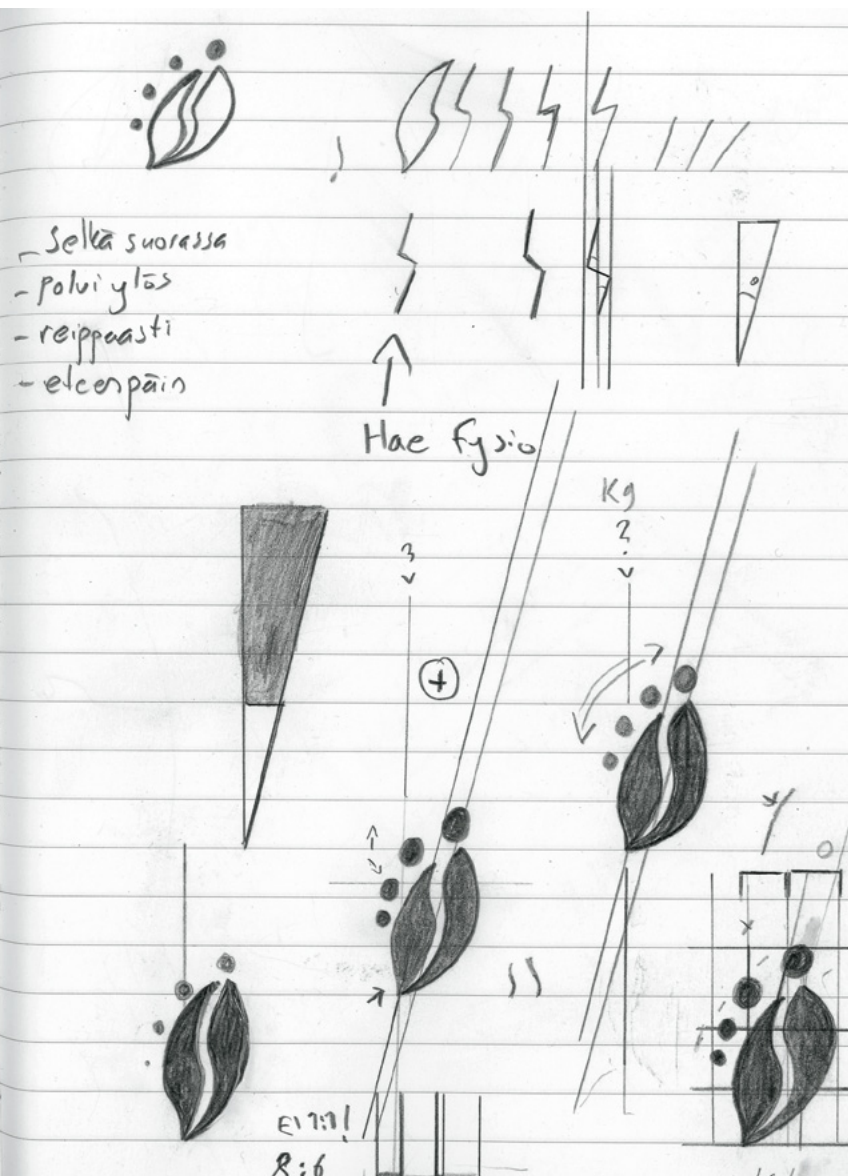 - Selkä suorassa
- polvi ylös
- reippaasti
- eteenpäin
Hae Fysio
Kg
?
?
+
EI 1:1!
8:6